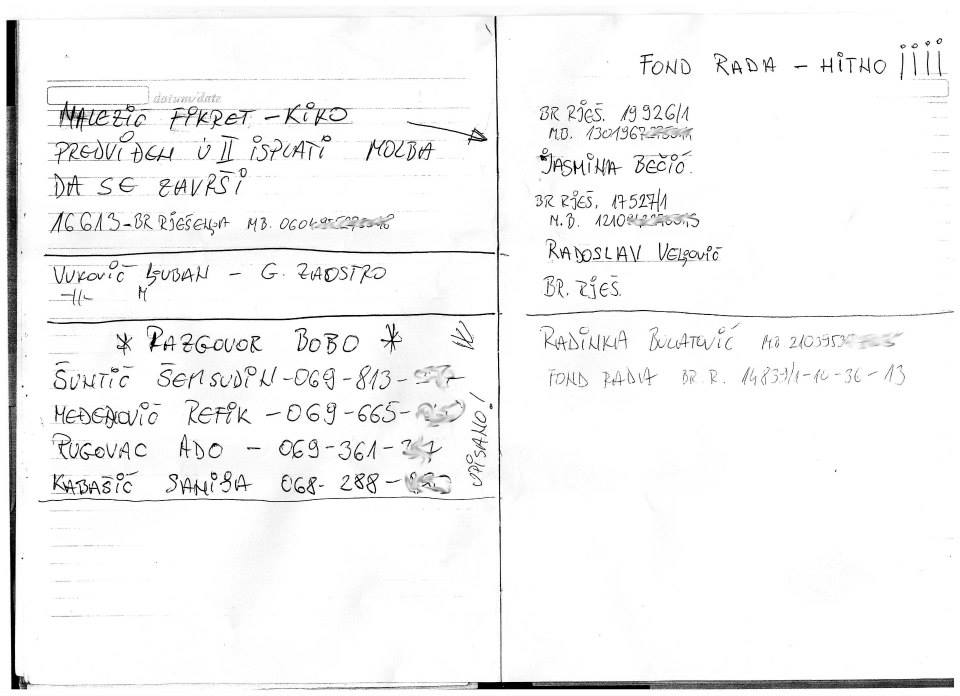 datum/date
NALEZIĆ FIKRET - KIKO
PREDVIĐEN U II ISPLATI MOLBA
DA SE ZAVRŠI
16613 - BR RJEŠENJA MB. 0604
VUKOVIĆ LJUBAN - G. ZAOSTRO
-||- M
* RAZGOVOR BOBO *
ŠUNTIĆ ŠEMSUDIN - 069-813-
MEDENOVIĆ REFIK - 069-665-
PUGOVAC ADO - 069-361-
KABAŠIĆ SANISA 068-288-
UPISANO!
FOND RADA - HITNO ¡¡¡¡
BR RJEŠ. 19926/1
M.B. 1301967
JASMINA BEČIĆ.
BR RJEŠ. 17527/1
M.B. 1210
RADOSLAV VELJOVIĆ
BR. RJEŠ.
RADINKA BULATOVIĆ MB 2103953
FOND RADA BR R. 14839/1-10-36-13